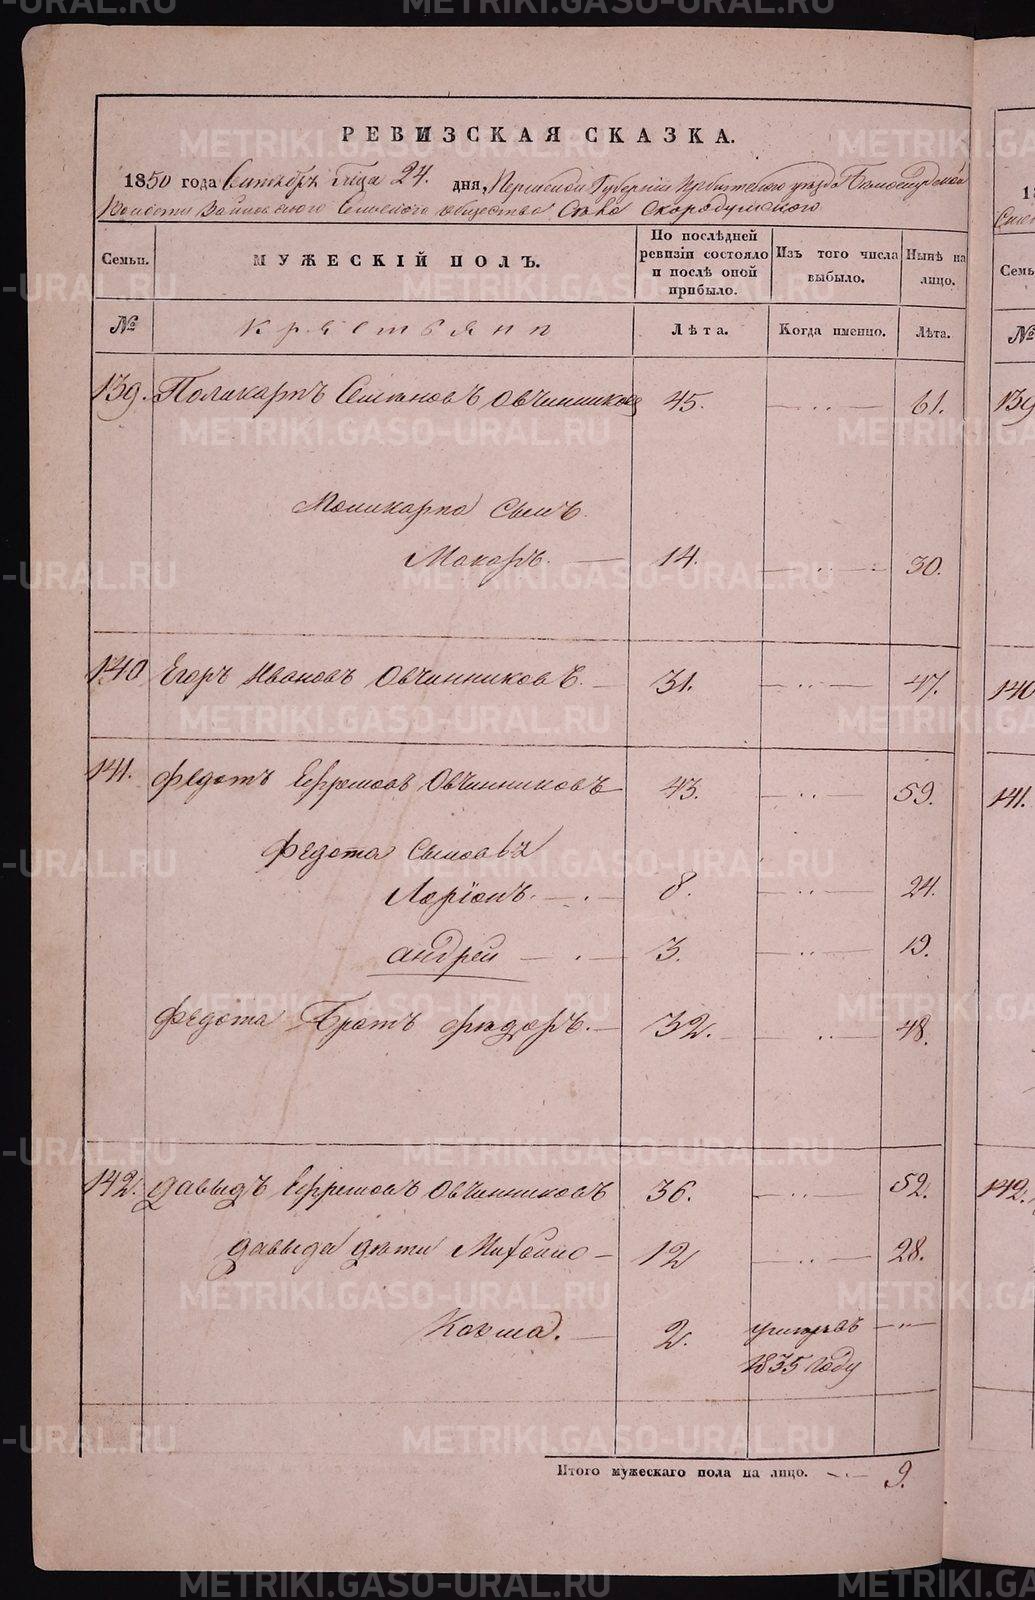 РЕВИЗСКАЯ СКАЗКА.
1850 года Сентября 24. дня, Пермской Губернии Ирбитскаго уезда
Волости Сельского общества Села Скородумского
Семьи.
МУЖЕСКІЙ ПОЛЪ.
По послѣдней ревизіи состояло и послѣ оной прибыло.
Изъ того числа выбыло.
Нынѣ на лицо.
№
Крестьяни
Лѣта.
Когда именно.
Лѣта.
139. Поликарпъ Семеновъ Овчинниковъ 45. — .. — 61.
Поликарпа сынъ
Макаръ. — 14. — .. — 30.
140 Егоръ Ивановъ Овчинниковъ. — 31. — .. — 47.
141. Федотъ Ефремовъ Овчинниковъ 43. — .. — 59.
Федота сыновья
Ларіонъ. — . — 8. — .. — 24.
андрей — . — 3. — .. — 19.
Федота Братъ фядоръ. — 32. — .. — 48.
142. давыдъ Ефремовъ Овчинниковъ 36. — .. — 52.
давыда дети Михайло — 12 — .. — 28.
Козма. — 2. умеръ — " —
1835 году
Итого мужескаго пола на лицо. 9.
139
140
141.
142.
METRIKI.GASO-URAL.RU